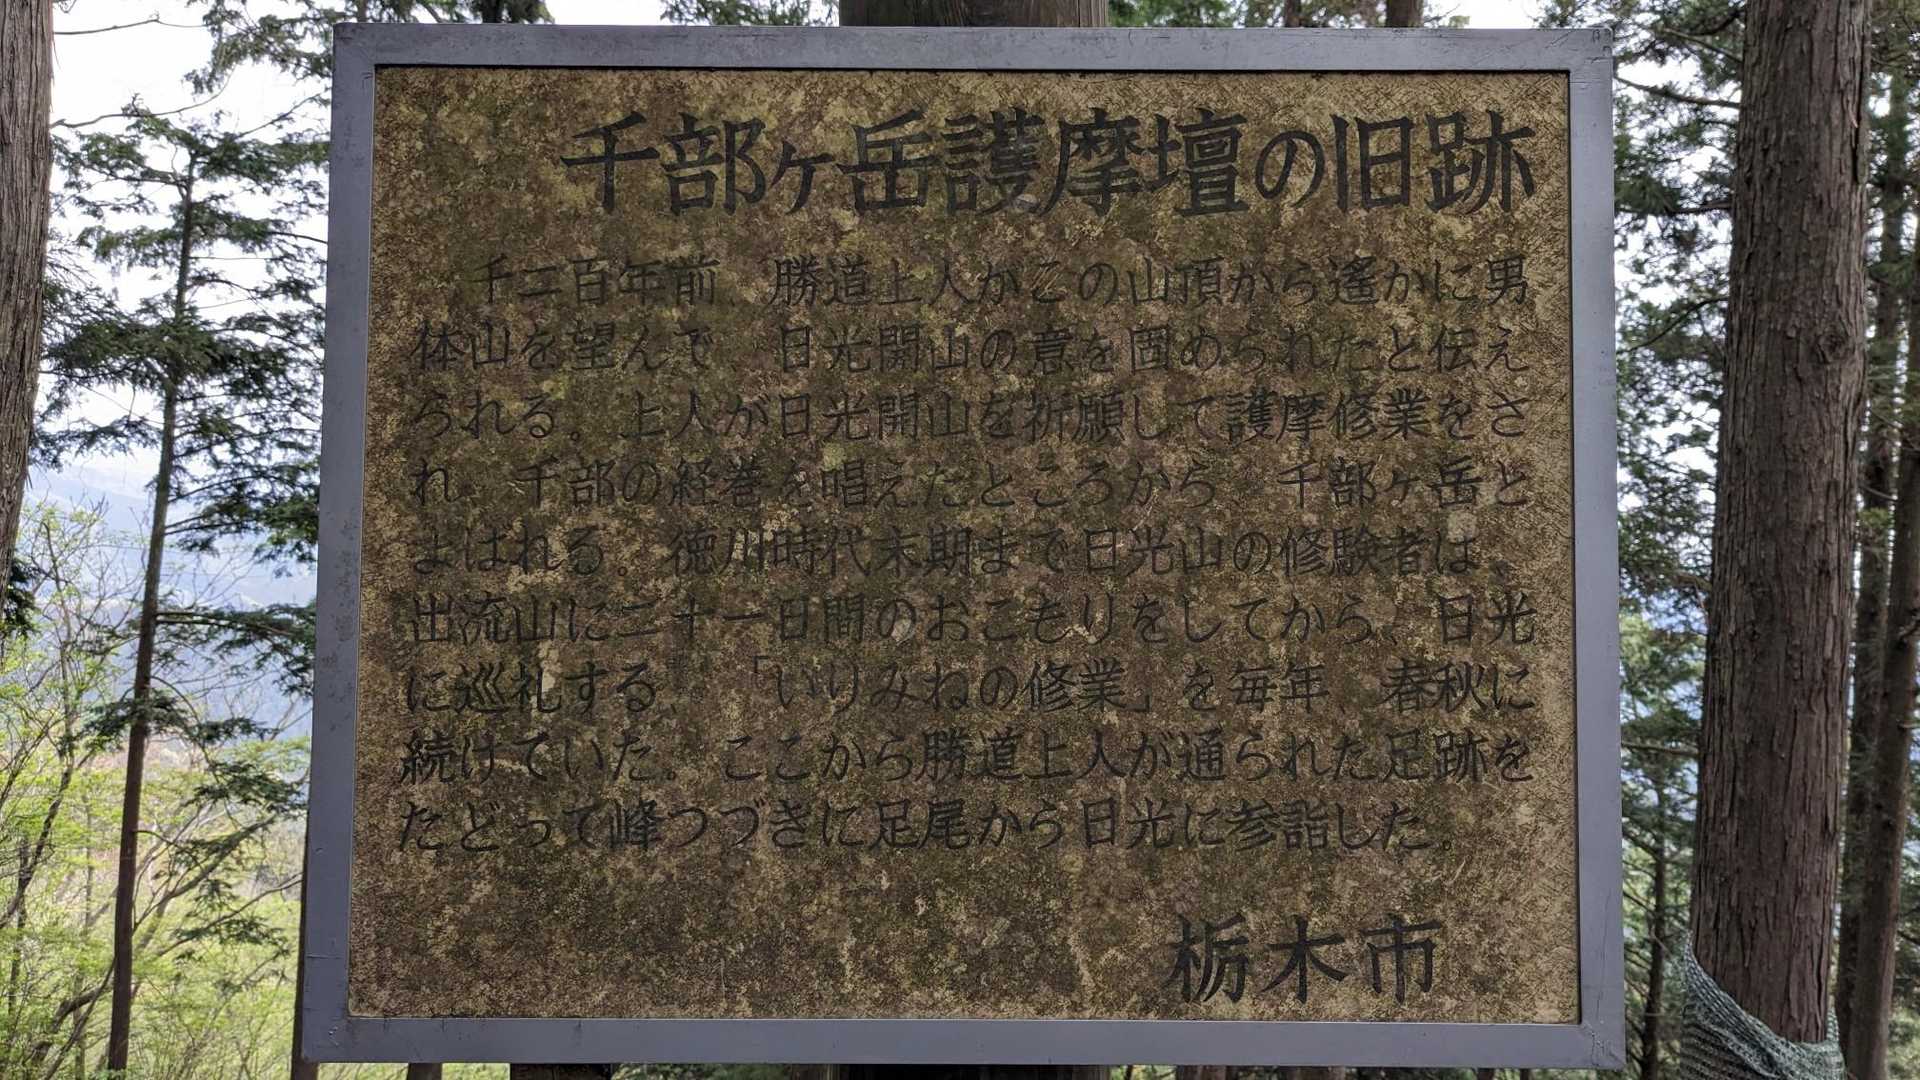 千部ヶ岳護摩壇の旧跡
千二百年前、勝道上人がこの山頂から遙かに男
体山を望んで、日光開山の意を固められたと伝え
られる。上人が日光開山を祈願して護摩修業をさ
れ、千部の経巻を唱えたところから、千部ヶ岳と
よばれる。徳川時代末期まで日光山の修験者は、
出流山に二十一日間のおこもりをしてから、日光
に巡礼する、「いりみねの修業」を毎年、春秋に
続けていた。ここから勝道上人が通られた足跡を
たどって峰つづきに足尾から日光に参詣した。
栃木市